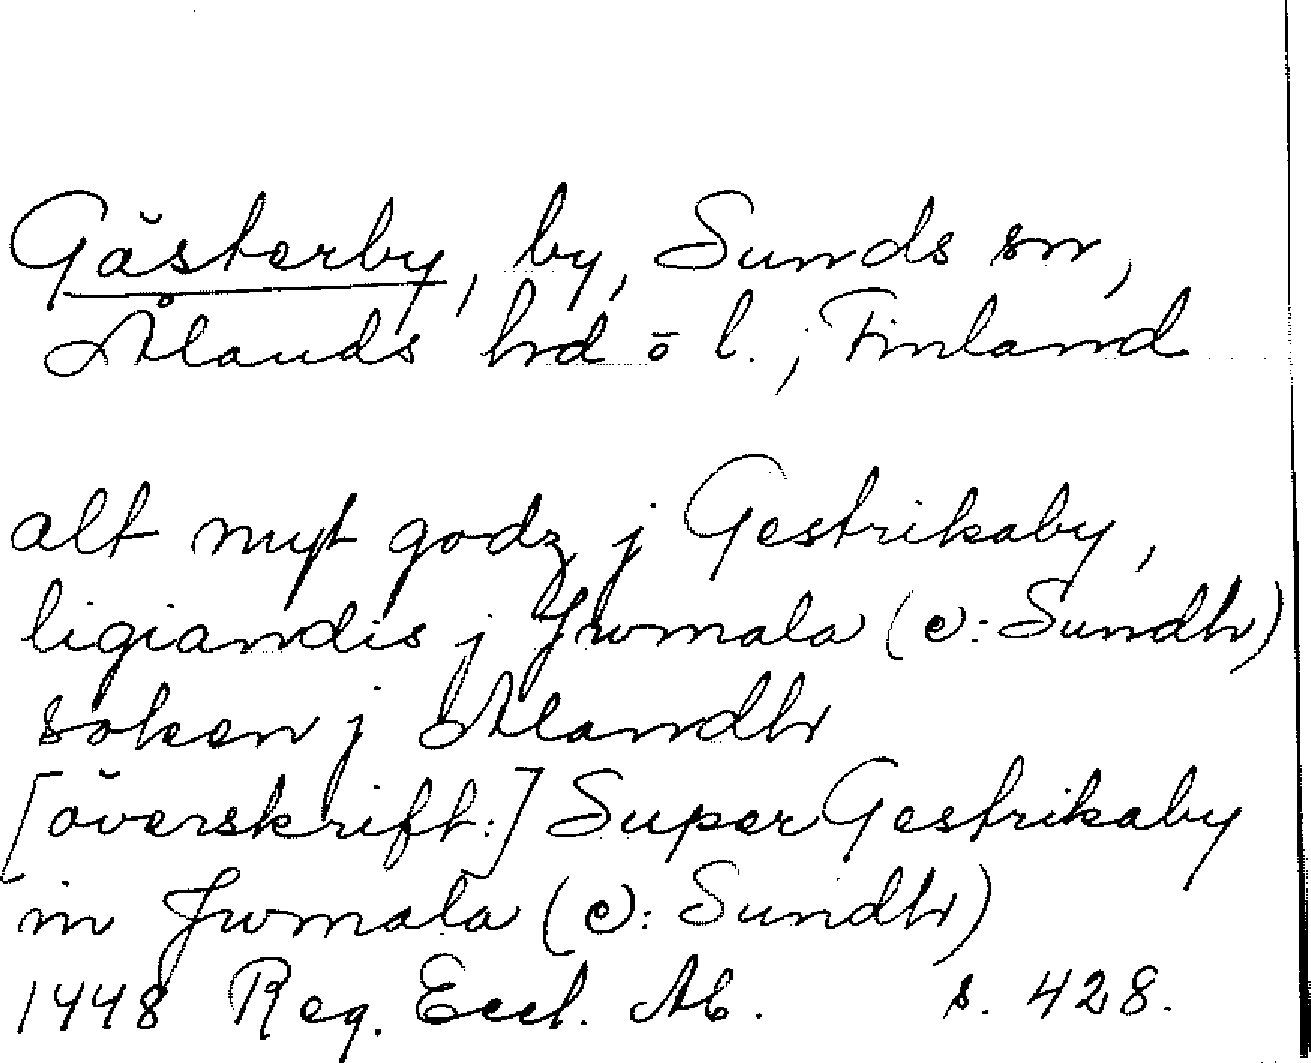 Gästerby, by, Sunds sn,
Ålands hd o l., Finland
alt myt godz j Gestrikaby,
ligiandis j Jwmala (ɔ: Sundh)
soken j Alandh
[överskrift:] Super Gestrikaby
in Jwmala (ɔ: Sundh)
1448 Reg. Eccl. Ab. s. 428.